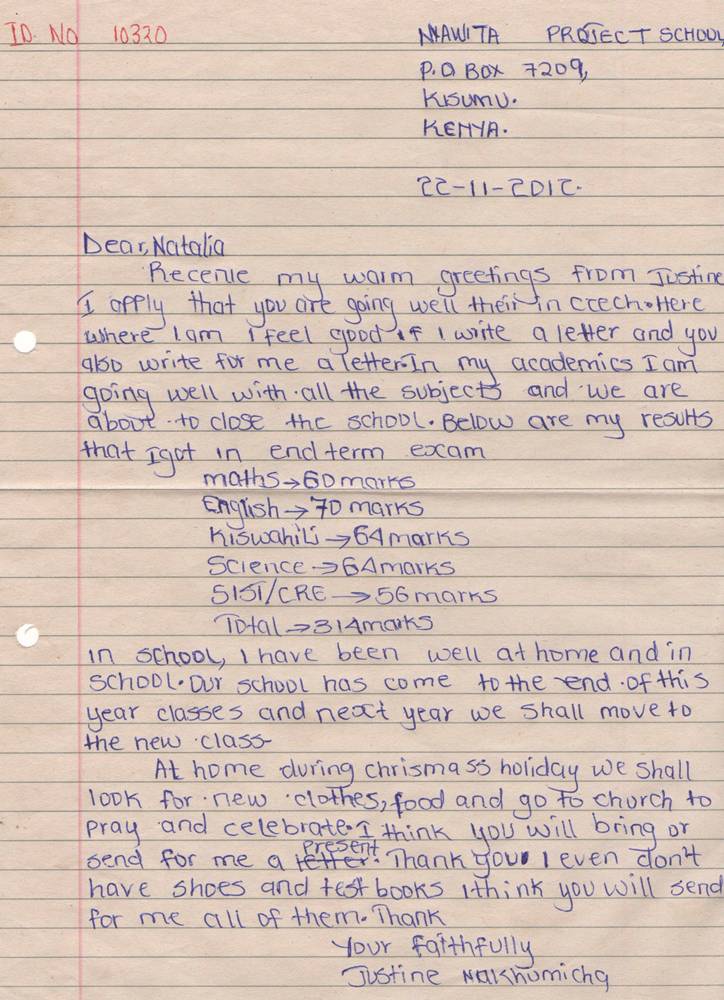 ID. NO 10320 NYAWITA PROJECT SCHOOL
P.O BOX 7209,
KISUMU.
KENYA.
22-11-2012.
Dear, Natalia
Receive my warm greetings from Justine
I apply that you are going well their in Czech. Here
where I am I feel good if I write a letter and you
also write for me a letter. In my academics I am
going well with all the subjects and we are
about to close the school. Below are my results
that I got in end term exam
maths → 60 marks
English → 70 marks
Kiswahili → 64 marks
Science → 64 marks
S/ST/CRE → 56 marks
Total → 314 marks
in school, I have been well at home and in
school. Our school has come to the end of this
year classes and next year we shall move to
the new class
At home during chrismass holiday we shall
look for new clothes, food and go to church to
pray and celebrate. I think you will bring or
present
send for me a letter. Thank you. I even don't
have shoes and test books I think you will send
for me all of them. Thank
Your faithfully
Justine Nakhumicha